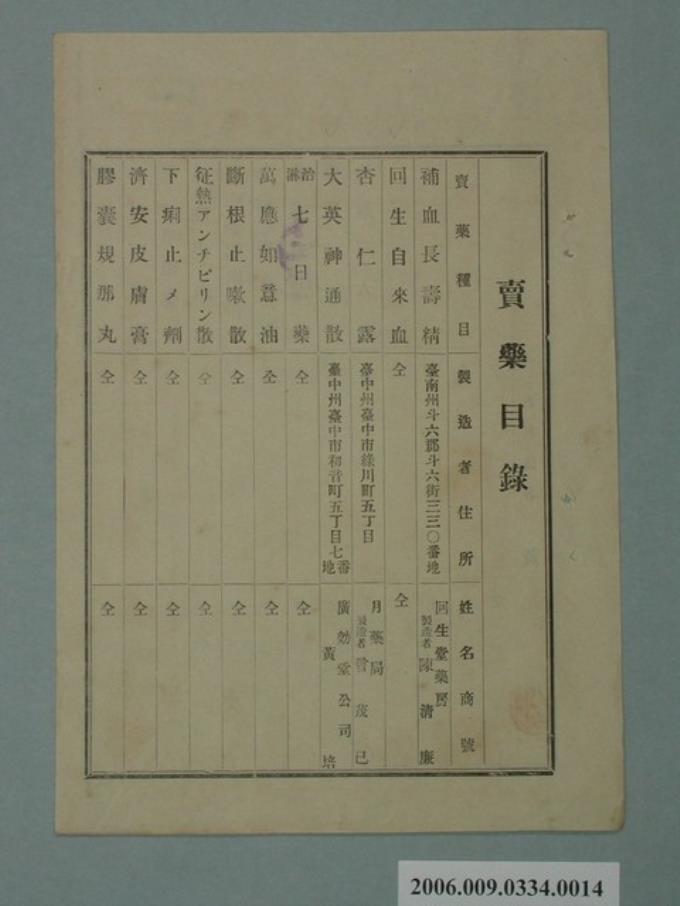 賣藥目錄
賣藥種目 製造者住所 姓名商號
補血長壽精 臺南州斗六郡斗六街三三〇番地 回生堂藥房 製造者 陳清廉
回生自來血 仝 仝
杏仁露 臺中州臺中市綠川町五丁目 月藥局 製造者 曾茂己
大英神通散 臺中州臺中市初音町五丁目七番地 廣効堂公司 黃培
治淋七日藥 仝 仝
萬應如意油 仝 仝
斷根止嗽散 仝 仝
征熱アンチピリン散 仝 仝
下痢止メ劑 仝 仝
濟安皮膚膏 仝 仝
膠囊規那丸 仝 仝
2006.009.0334.0014